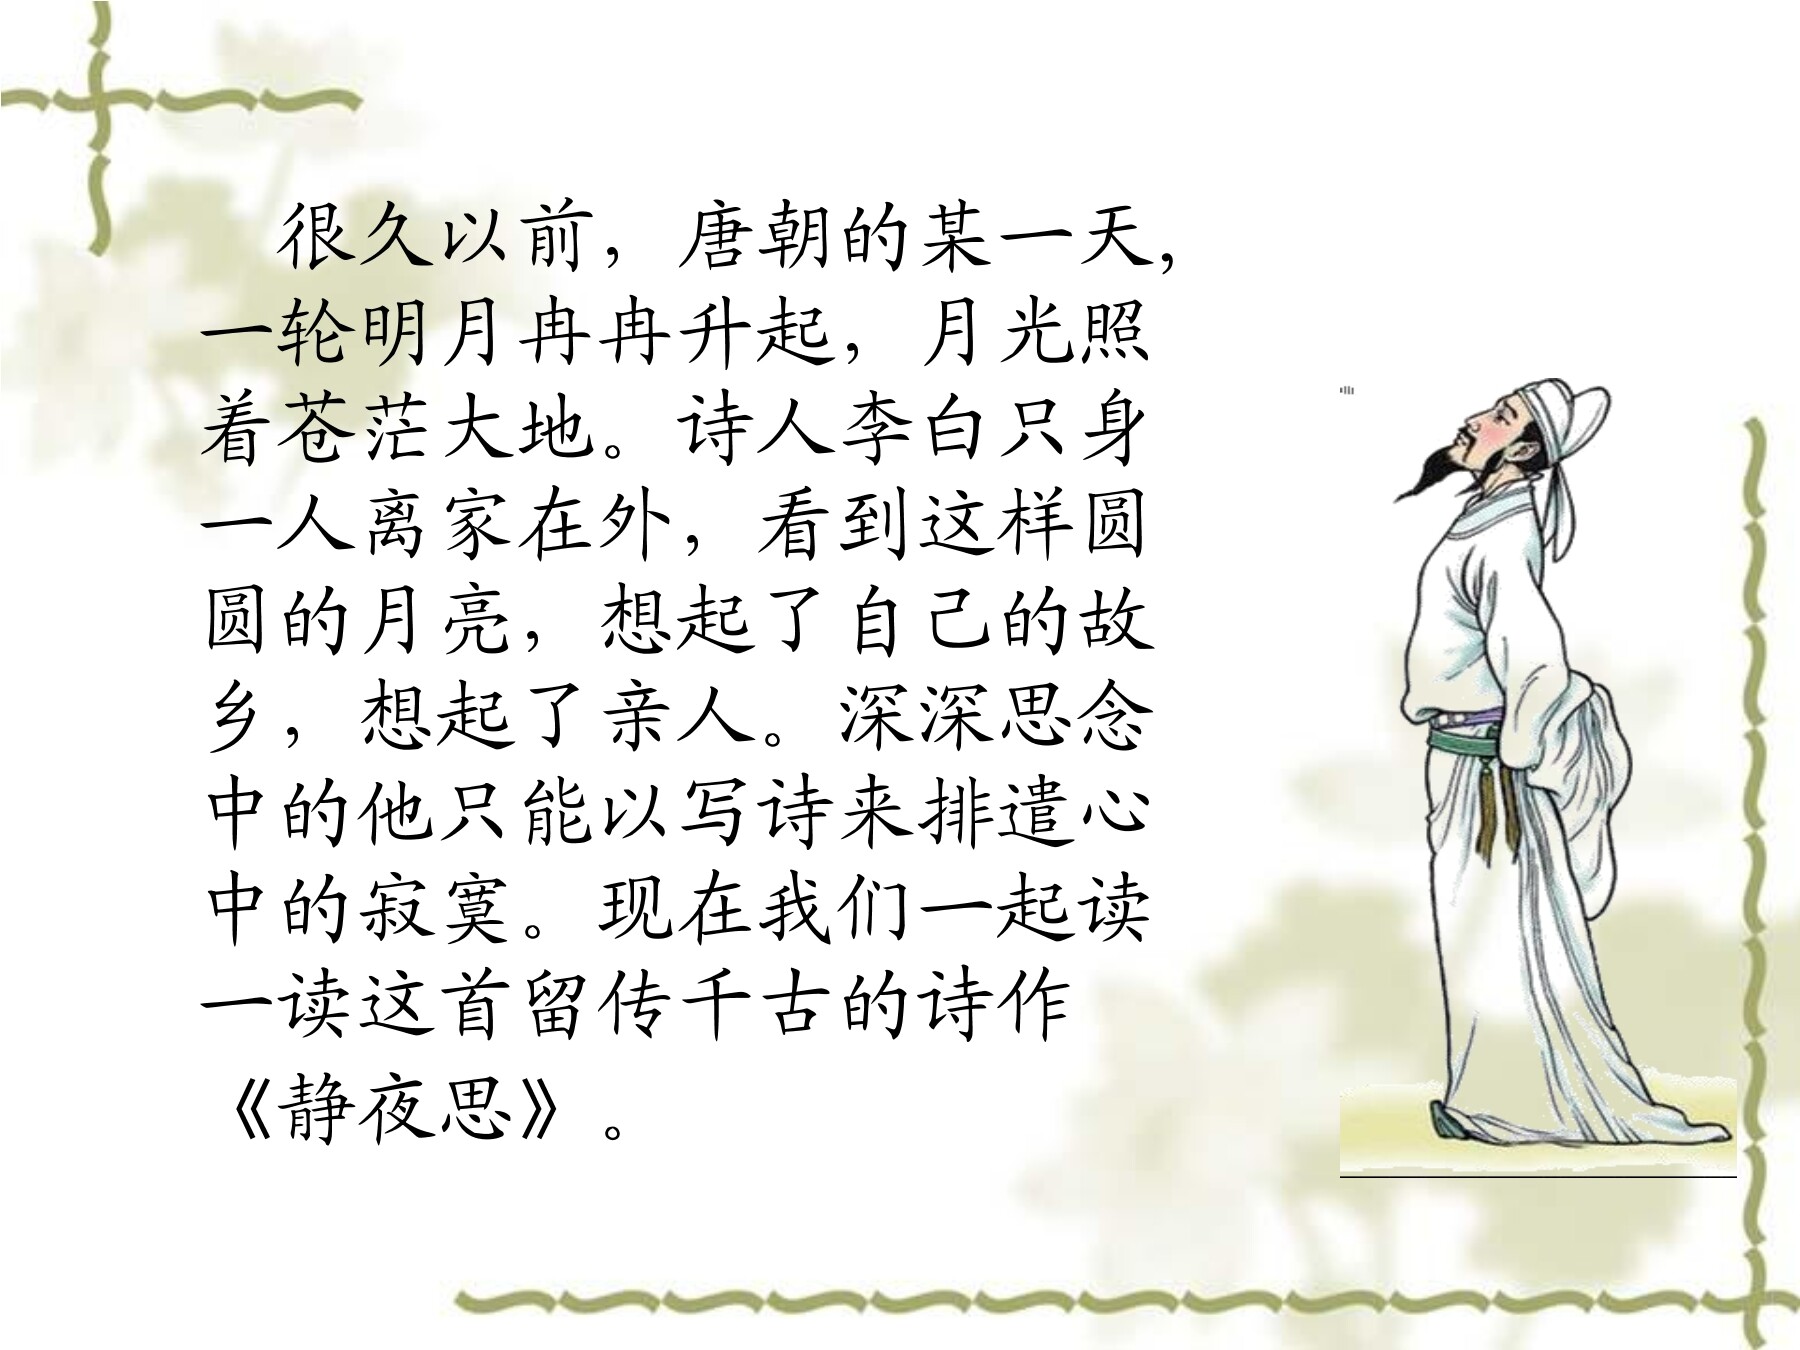 很久以前，唐朝的某一天，
一轮明月冉冉升起，月光照
着苍茫大地。诗人李白只身
一人离家在外，看到这样圆
圆的月亮，想起了自己的故
乡，想起了亲人。深深思念
中的他只能以写诗来排遣心
中的寂寞。现在我们一起读
一读这首留传千古的诗作
《静夜思》。